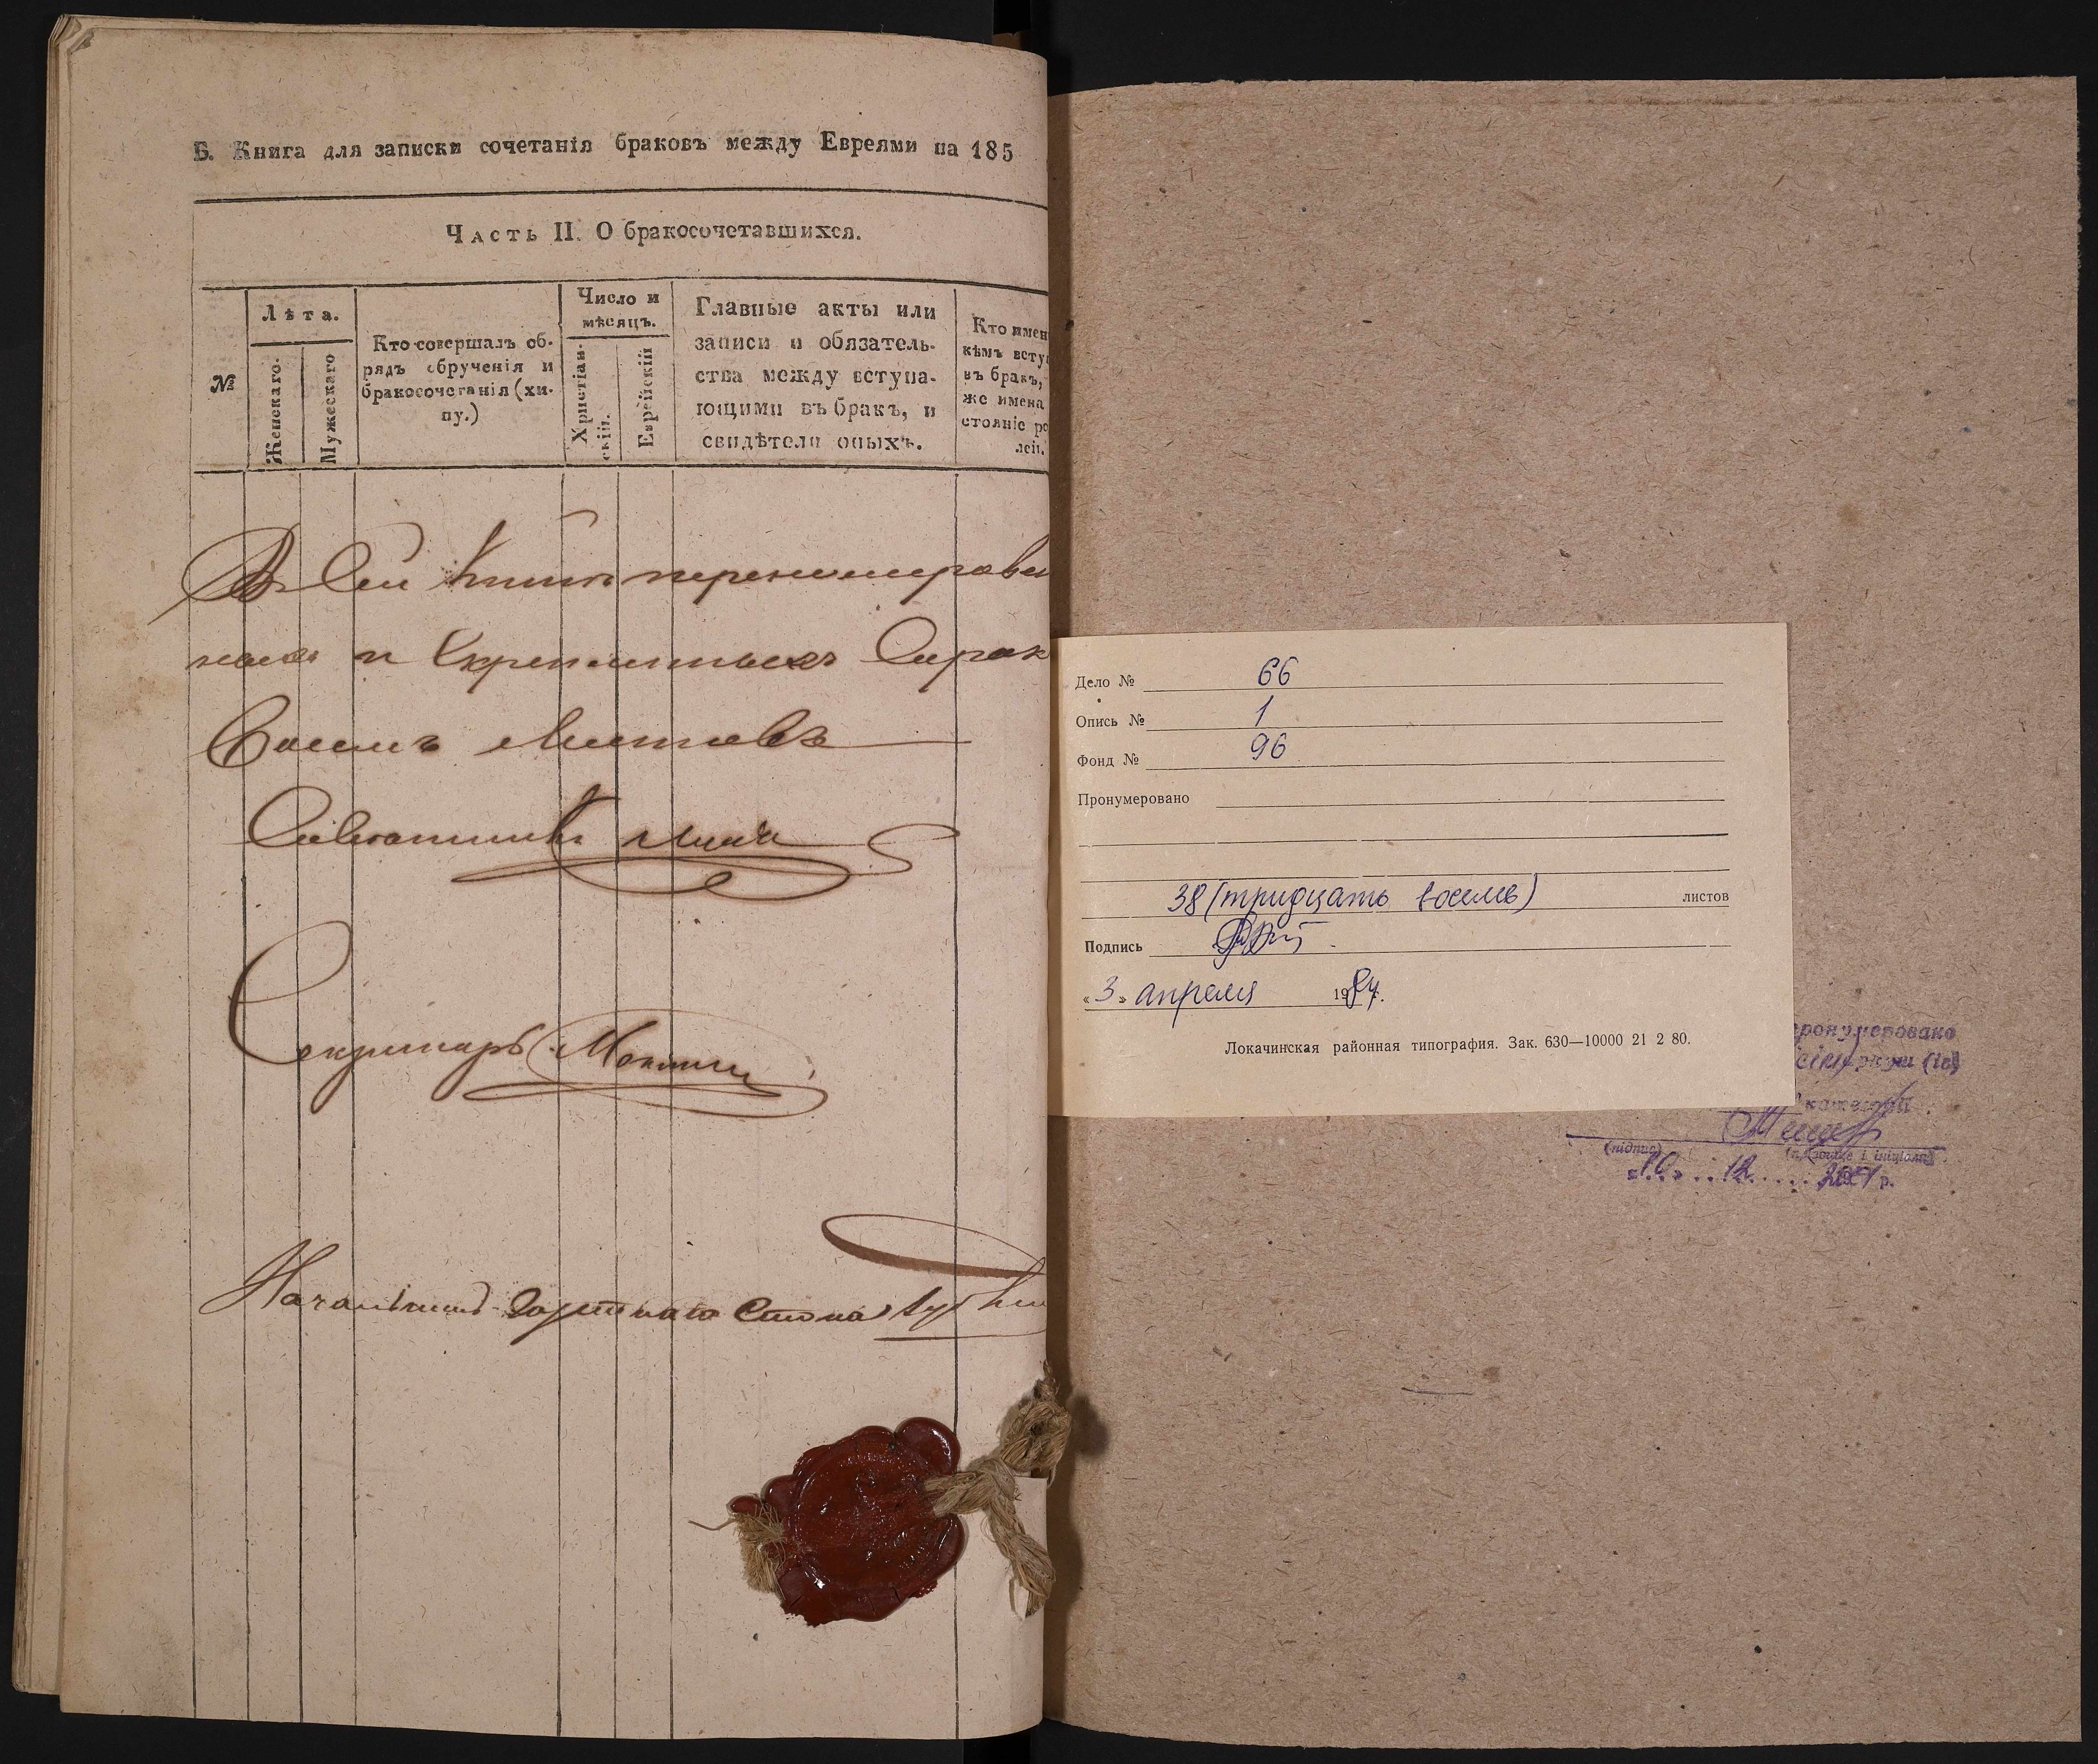 Б. Книга для записки сочетанія браковъ между Евреями на 185
Часть II. О бракосочетавшихся.
№
Лѣта.
Женскаго.
Мужескаго
Кто совершалъ об-
рядъ обрученія и
бракосочетанія (хи-
пу.)
Число и
мѣсяцъ.
Христіан-
скій.
Еврейскій
Главные акты или
записи и обязатель-
ства между вступа-
ющими въ бракъ, и
свидѣтели оныхъ.
Кто имен
кѣмъ всту
въ бракъ,
же имена
стояніе ро
лей.
В Сей книги перенумерован
ных и Скрепленных Сорок
Восемь листовъ
Советникъ
Секретарь
Начальникъ Стола
Дело № 66
Опись № 1
Фонд № 96
Пронумеровано
38 (тридцать восемь) листов
Подпись
« 3 » апреля 1984г.
Локачинская районная типография. Зак. 630—10000 21 2 80.
пронумеровано
(ів)
категорії
(підпис) (прізвище і ініціали)
«10» 12 р.